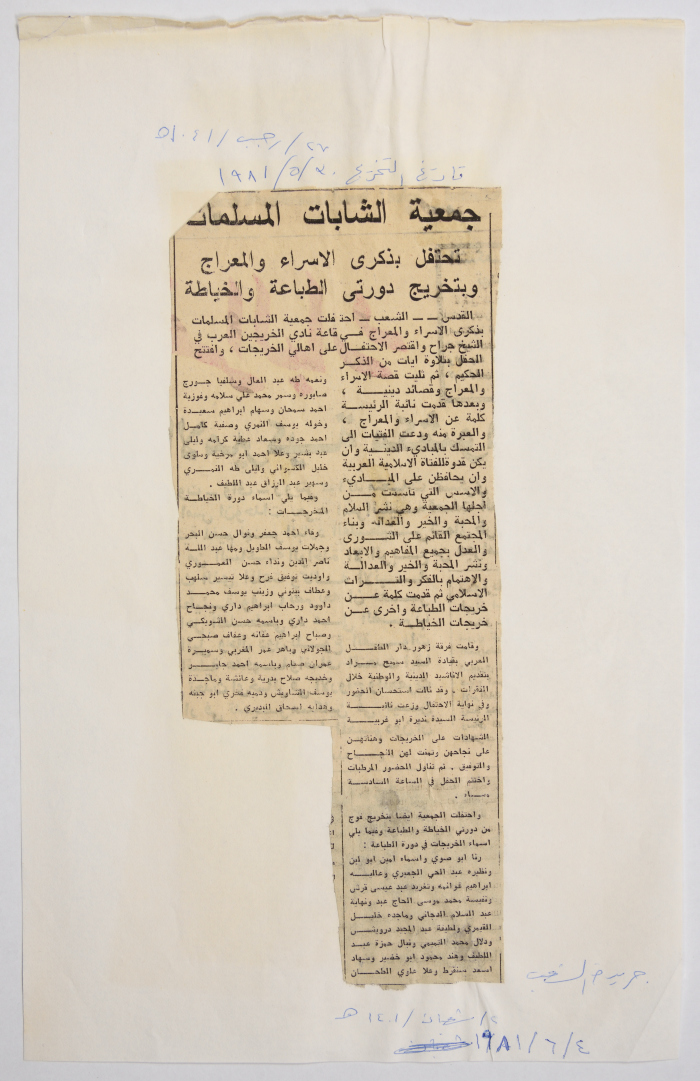 ٢٧/رجب/١٤٠١هـ
تاريخ التخرج ١٩٨١/٥/٣٠
جمعية الشابات المسلمات
تحتفل بذكرى الاسراء والمعراج
وبتخريج دورتي الطباعة والخياطة
القدس ــ الشعب ــ احتفلت جمعية الشابات المسلمات
بذكرى الاسراء والمعراج في قاعة نادي الخريجين العرب في
الشيخ جراح واقتصر الاحتفال على اهالي الخريجات ، وافتتح
الحفل بتلاوة ايات من الذكر
الحكيم ، ثم تليت قصة الاسراء
والمعراج وقصائد دينية ،
وبعدها قدمت نائبة الرئيسة
كلمة عن الاسراء والمعراج ،
والعبرة منه ودعت الفتيات الى
التمسك بالمباديء الدينية وان
يكن قدوة للفتاة الاسلامية العربية
وان يحافظن على المباديء
والاسس التي تأسست من
اجلها الجمعية وهي نشر السلام
والمحبة والخير والعدالة وبناء
المجتمع القائم على الشورى
والعدل بجميع المفاهيم والابعاد
ونشر المحبة والخير والعدالة
والاهتمام بالفكر والتراث
الاسلامي ثم قدمت كلمة عن
خريجات الطباعة واخرى عن
خريجات الخياطة .
وقامت فرقة زهور دار الطفل
العربي بقيادة السيد سميح مراد
بتقديم الاناشيد الدينية والوطنية خلال
الفقرات . وقد نالت استحسان الحضور
وفي نهاية الاحتفال وزعت نائبة
الرئيسة السيدة نديرة ابو غربية
الشهادات على الخريجات وهنأتهن
على نجاحهن وتمنت لهن النجاح
والتوفيق . ثم تناول الحضور المرطبات
واختتم الحفل في الساعة السادسة
مساء .
واحتفلت الجمعية ايضا بتخريج فوج
من دورتي الخياطة والطباعة وفيما يلي
اسماء الخريجات في دورة الطباعة :
رنا ابو صوي واسماء امين ابو لبن
ونظيره عبد الحي الجعبري وعاليه
ابراهيم غوانمه وتغريد عبد عيسى قرش
ونفيسة محمد موسى الحاج عبد ونهاية
عبد السلام الدجاني وماجده خليل
القيمري ولطيفة عبد المجيد درويش
ودلال محمد التميمي ونبال حمزة عبد
اللطيف وهند محمود ابو خضير وسهاد
اسعد سنقرط وعلا غازي الطحان
ونعمه طه عبد العال وسلفيا جورج
صابوره وسمر محمد علي سلامه وفوزية
احمد سمحان وسهام ابراهيم سعيدة
وخوله يوسف النمري وصفية كامل
احمد جوده وسعاد عطية كرامه وليلى
عبد بشير وعلا احمد ابو مرخية وسلوى
خليل الكسراني وليلى طه النمري
وسهير عبد الرزاق عبد اللطيف .
وفيما يلي اسماء دورة الخياطة
المتخرجات :
وفاء احمد جعفر ونوال حسن البحر
وجملات يوسف الطويل ومها عبد الله
ناصر الدين ونداء حسن العموري
واوديت توفيق فرح وعلا تيسير سلهب
وعطاف بيتوني وزينب يوسف محمد
داوود ورحاب ابراهيم داري ونجاح
احمد داري وباسمه حسن الشويكي
وصباح ابراهيم عفانه وعفاف صبحي
الجولاني وباهر عمر المغربي وسميرة
عمران صيام وباسمه احمد جابر
وخديجه صلاح بدرية وعائشة وماجدة
يوسف النتاويش ودميه فخري ابو جبنه
وهدايه اسحاق البديري .
جريدة الشعب
٢/شعبان/١٤٠١هـ
١٩٨١/٦/٤